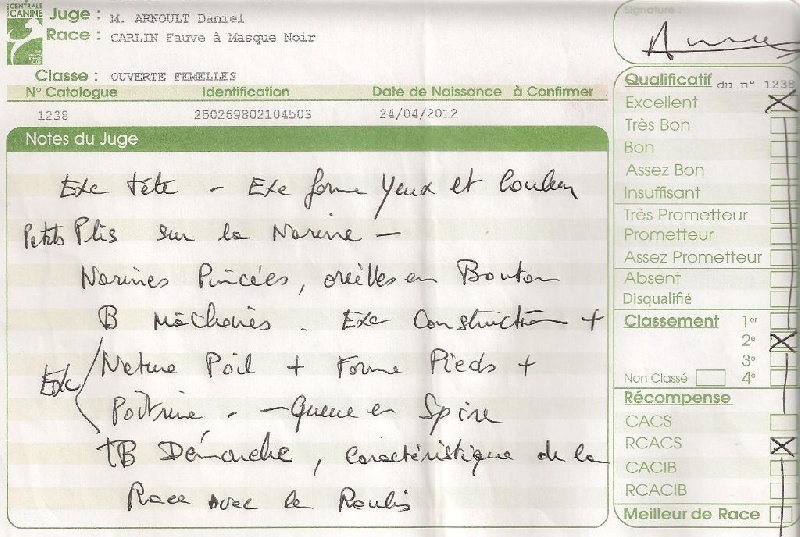 CENTRALE
CANINE
Juge : M. ARNOULT Daniel
Race : CARLIN Fauve à Masque Noir
Classe : OUVERTE FEMELLES
N° Catalogue Identification Date de Naissance à Confirmer
1238 250269802104503 24/04/2012
Notes du Juge
Exc tête - Exc forme Yeux et Couleur
Petits Plis sur la Narine -
Narines Pincées, oreilles en Bouton
B Mâchoires. Exc Construction +
Exc Nature Poil + Forme Pieds +
Poitrine. - Queue en Spire
TB Démarche, caractéristique de la
Race avec le Roulis
Signature :
Qualificatif du n° 1238
Excellent X
Très Bon
Bon
Assez Bon
Insuffisant
Très Prometteur
Prometteur
Assez Prometteur
Absent
Disqualifié
Classement 1er
2e X
3e
Non Classé 4e
Récompense
CACS
RCACS X
CACIB
RCACIB
Meilleur de Race